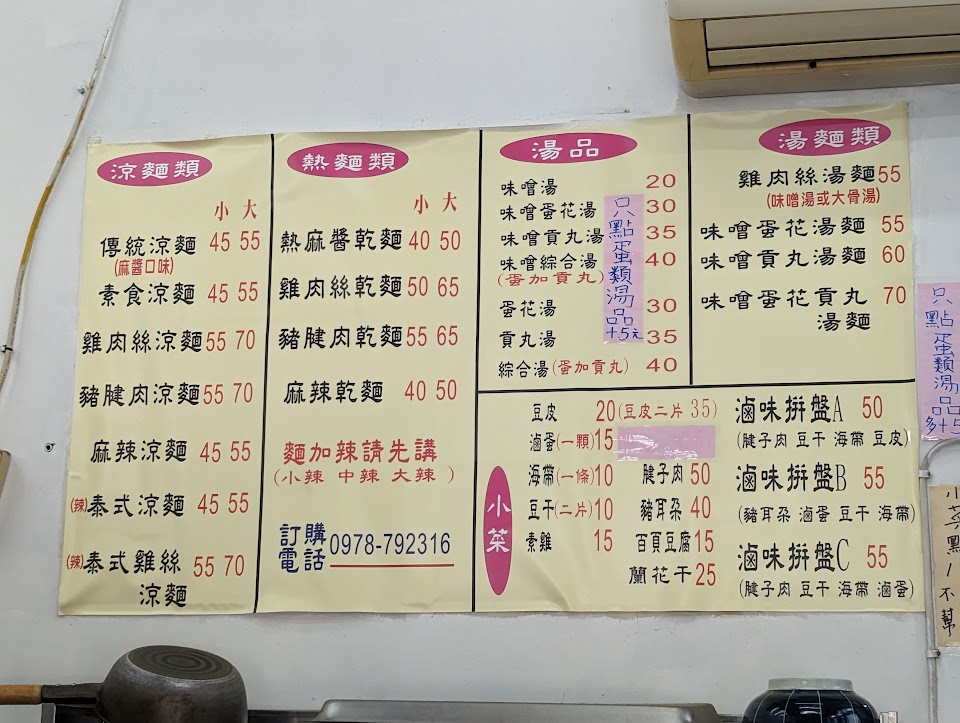 涼麵類
小 大
傳統涼麵 45 55
(麻醬口味)
素食涼麵 45 55
雞肉絲涼麵 55 70
豬腱肉涼麵 55 70
麻辣涼麵 45 55
(辣)泰式涼麵 45 55
(辣)泰式雞絲 55 70
涼麵
熱麵類
小 大
熱麻醬乾麵 40 50
雞肉絲乾麵 50 65
豬腱肉乾麵 55 65
麻辣乾麵 40 50
麵加辣請先講
(小辣 中辣 大辣 )
訂購
電話 0978-792316
湯品
味噌湯 20
味噌蛋花湯 30
味噌貢丸湯 35
味噌綜合湯 40
(蛋加貢丸)
蛋花湯 30
貢丸湯 35
綜合湯(蛋加貢丸) 40
只點蛋類湯品+5元
湯麵類
雞肉絲湯麵 55
(味噌湯或大骨湯)
味噌蛋花湯麵 55
味噌貢丸湯麵 60
味噌蛋花貢丸 70
湯麵
小菜
豆皮 20 (豆皮二片 35)
滷蛋(一顆) 15
海帶(一條) 10
豆干(二片) 10
素雞 15
腱子肉 50
豬耳朵 40
百頁豆腐 15
蘭花干 25
滷味拼盤A 50
(腱子肉 豆干 海帶 豆皮)
滷味拼盤B 55
(豬耳朵 滷蛋 豆干 海帶)
滷味拼盤C 55
(腱子肉 豆干 海帶 滷蛋)
只點蛋類湯品
小菜點
不幫